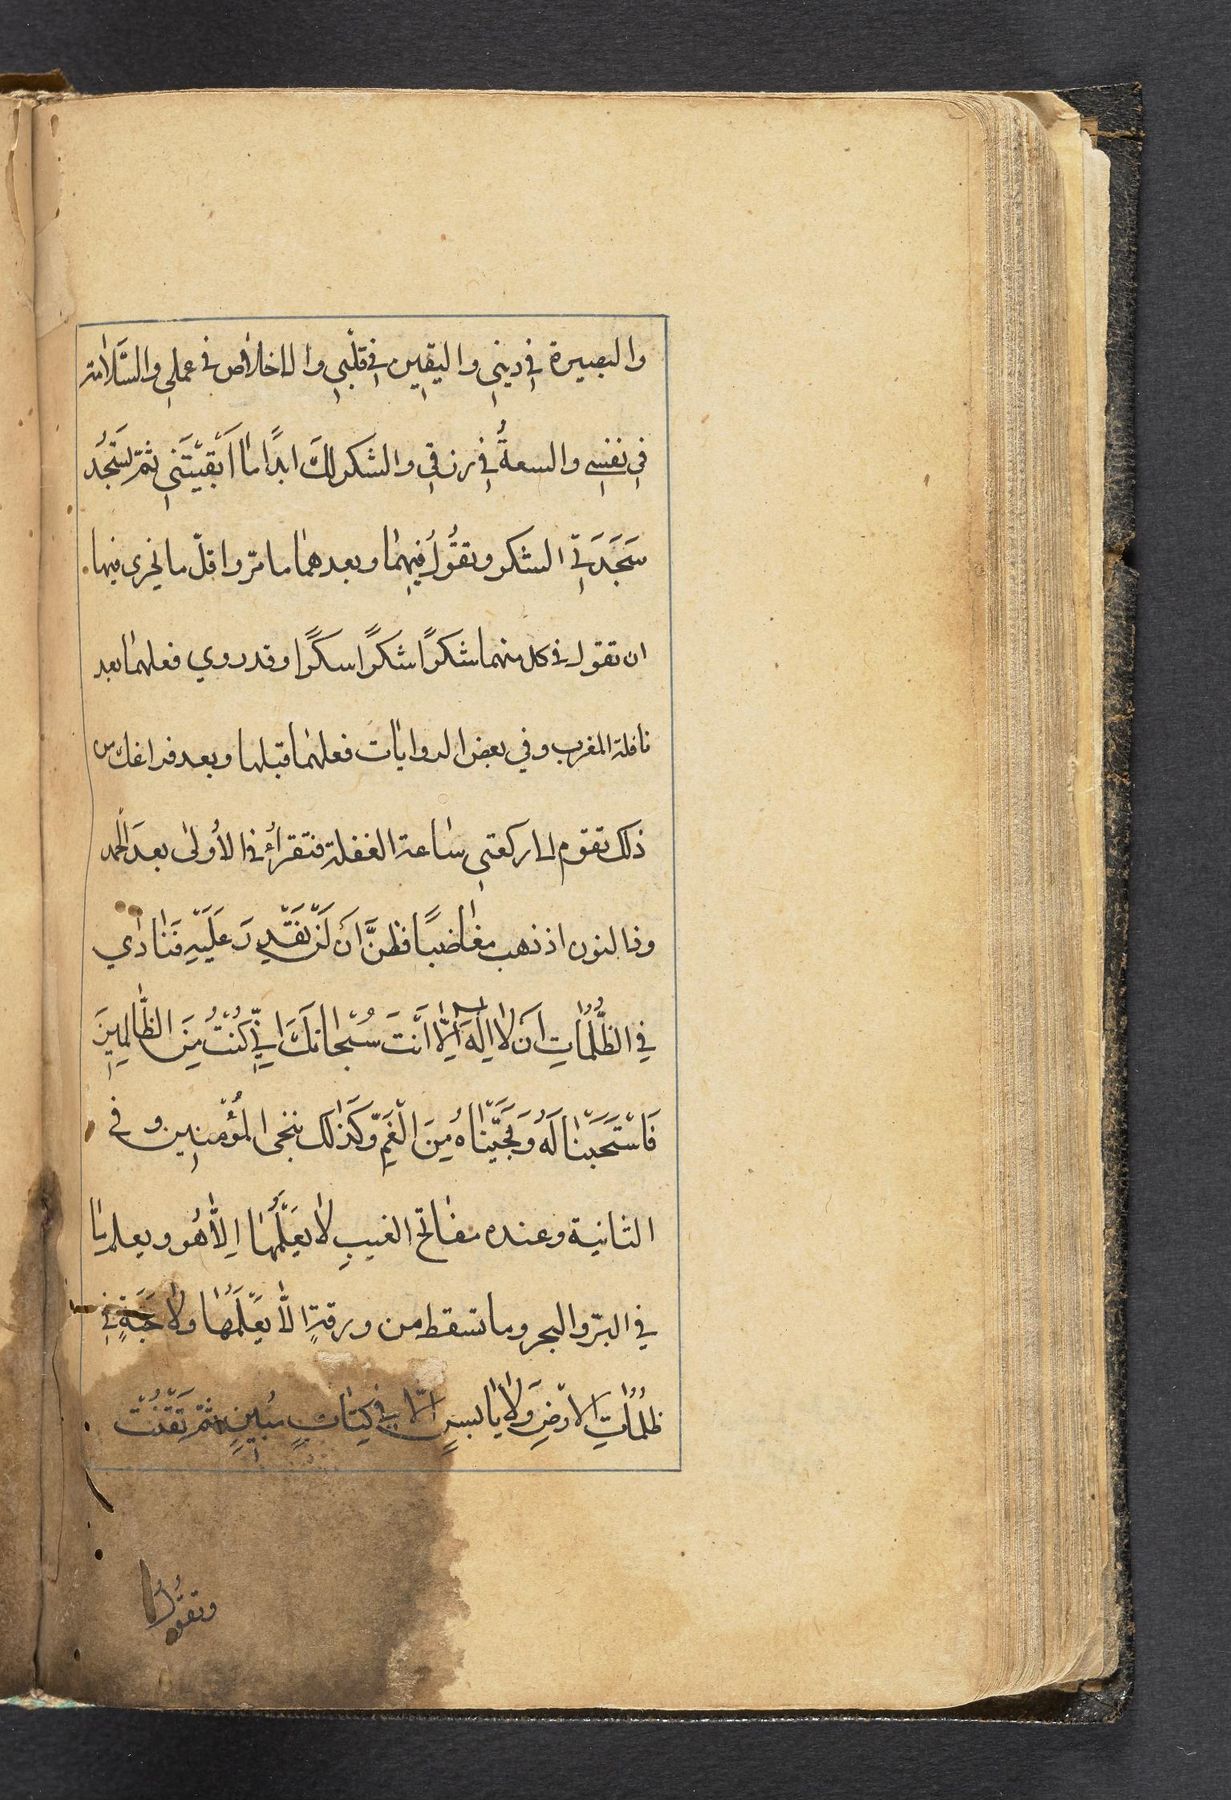 والبصيرة في ديني واليقين في قلبي والاخلاص في عملي والسَّلامة
في نفسي والسعةُ في رزقي والشكر لكَ ابدًا ما اَبقَيْتَني ثمّ تَسْجُد
سَجدَتَي الشكر وتقُولُ فيهِمٰا وبعدهما ما مرّ واقلّ ما يجزى فيها
ان تقول في كل منهما شكرًا شكرًا شكرًا وقد روي فعلهمٰا بعد
نافلة المغرب وفي بعض الروايٰات فعلهمٰا قبلها وبعد فراغك من
ذلك تقوم الى ركعتي سٰاعة الغفلة فتقرأُ في الأولىٰ بعدَ الحمد
وذا لنون اذ ذهب مغٰاضبًا فظنَّ اَن لَنْ نَقْدِرَ عَلَيْهِ فَنٰادٰي
في الظُّلُمٰاتِ اَن لٰا اِلٰهَ اِلّٰا اَنْتَ سُبْحٰانَكَ اِنّي كُنْتُ مِنَ الظّٰالِمينَ
فَاسْتَجَبْنٰا لَهُ وَنَجَّيْنٰاهُ مِنَ الْغَمِّ وَكَذٰلك ننجى المُؤْمنِين وفي
الثانية وعنده مفٰاتح الغيبِ لٰا يَعْلَمُهٰا اِلّٰا هُو ويعلم مٰا
في البرّ والبحر وما تسقط من ورقةٍ الّٰا يَعْلَمُهٰا ولٰا حَبَّةٍ في
ظلُمٰاتِ الارْضِ وَلٰا يٰابسٍ الّٰا في كِتٰابٍ مُبينٍ ثمّ تَقْنُت
وتقُولُ